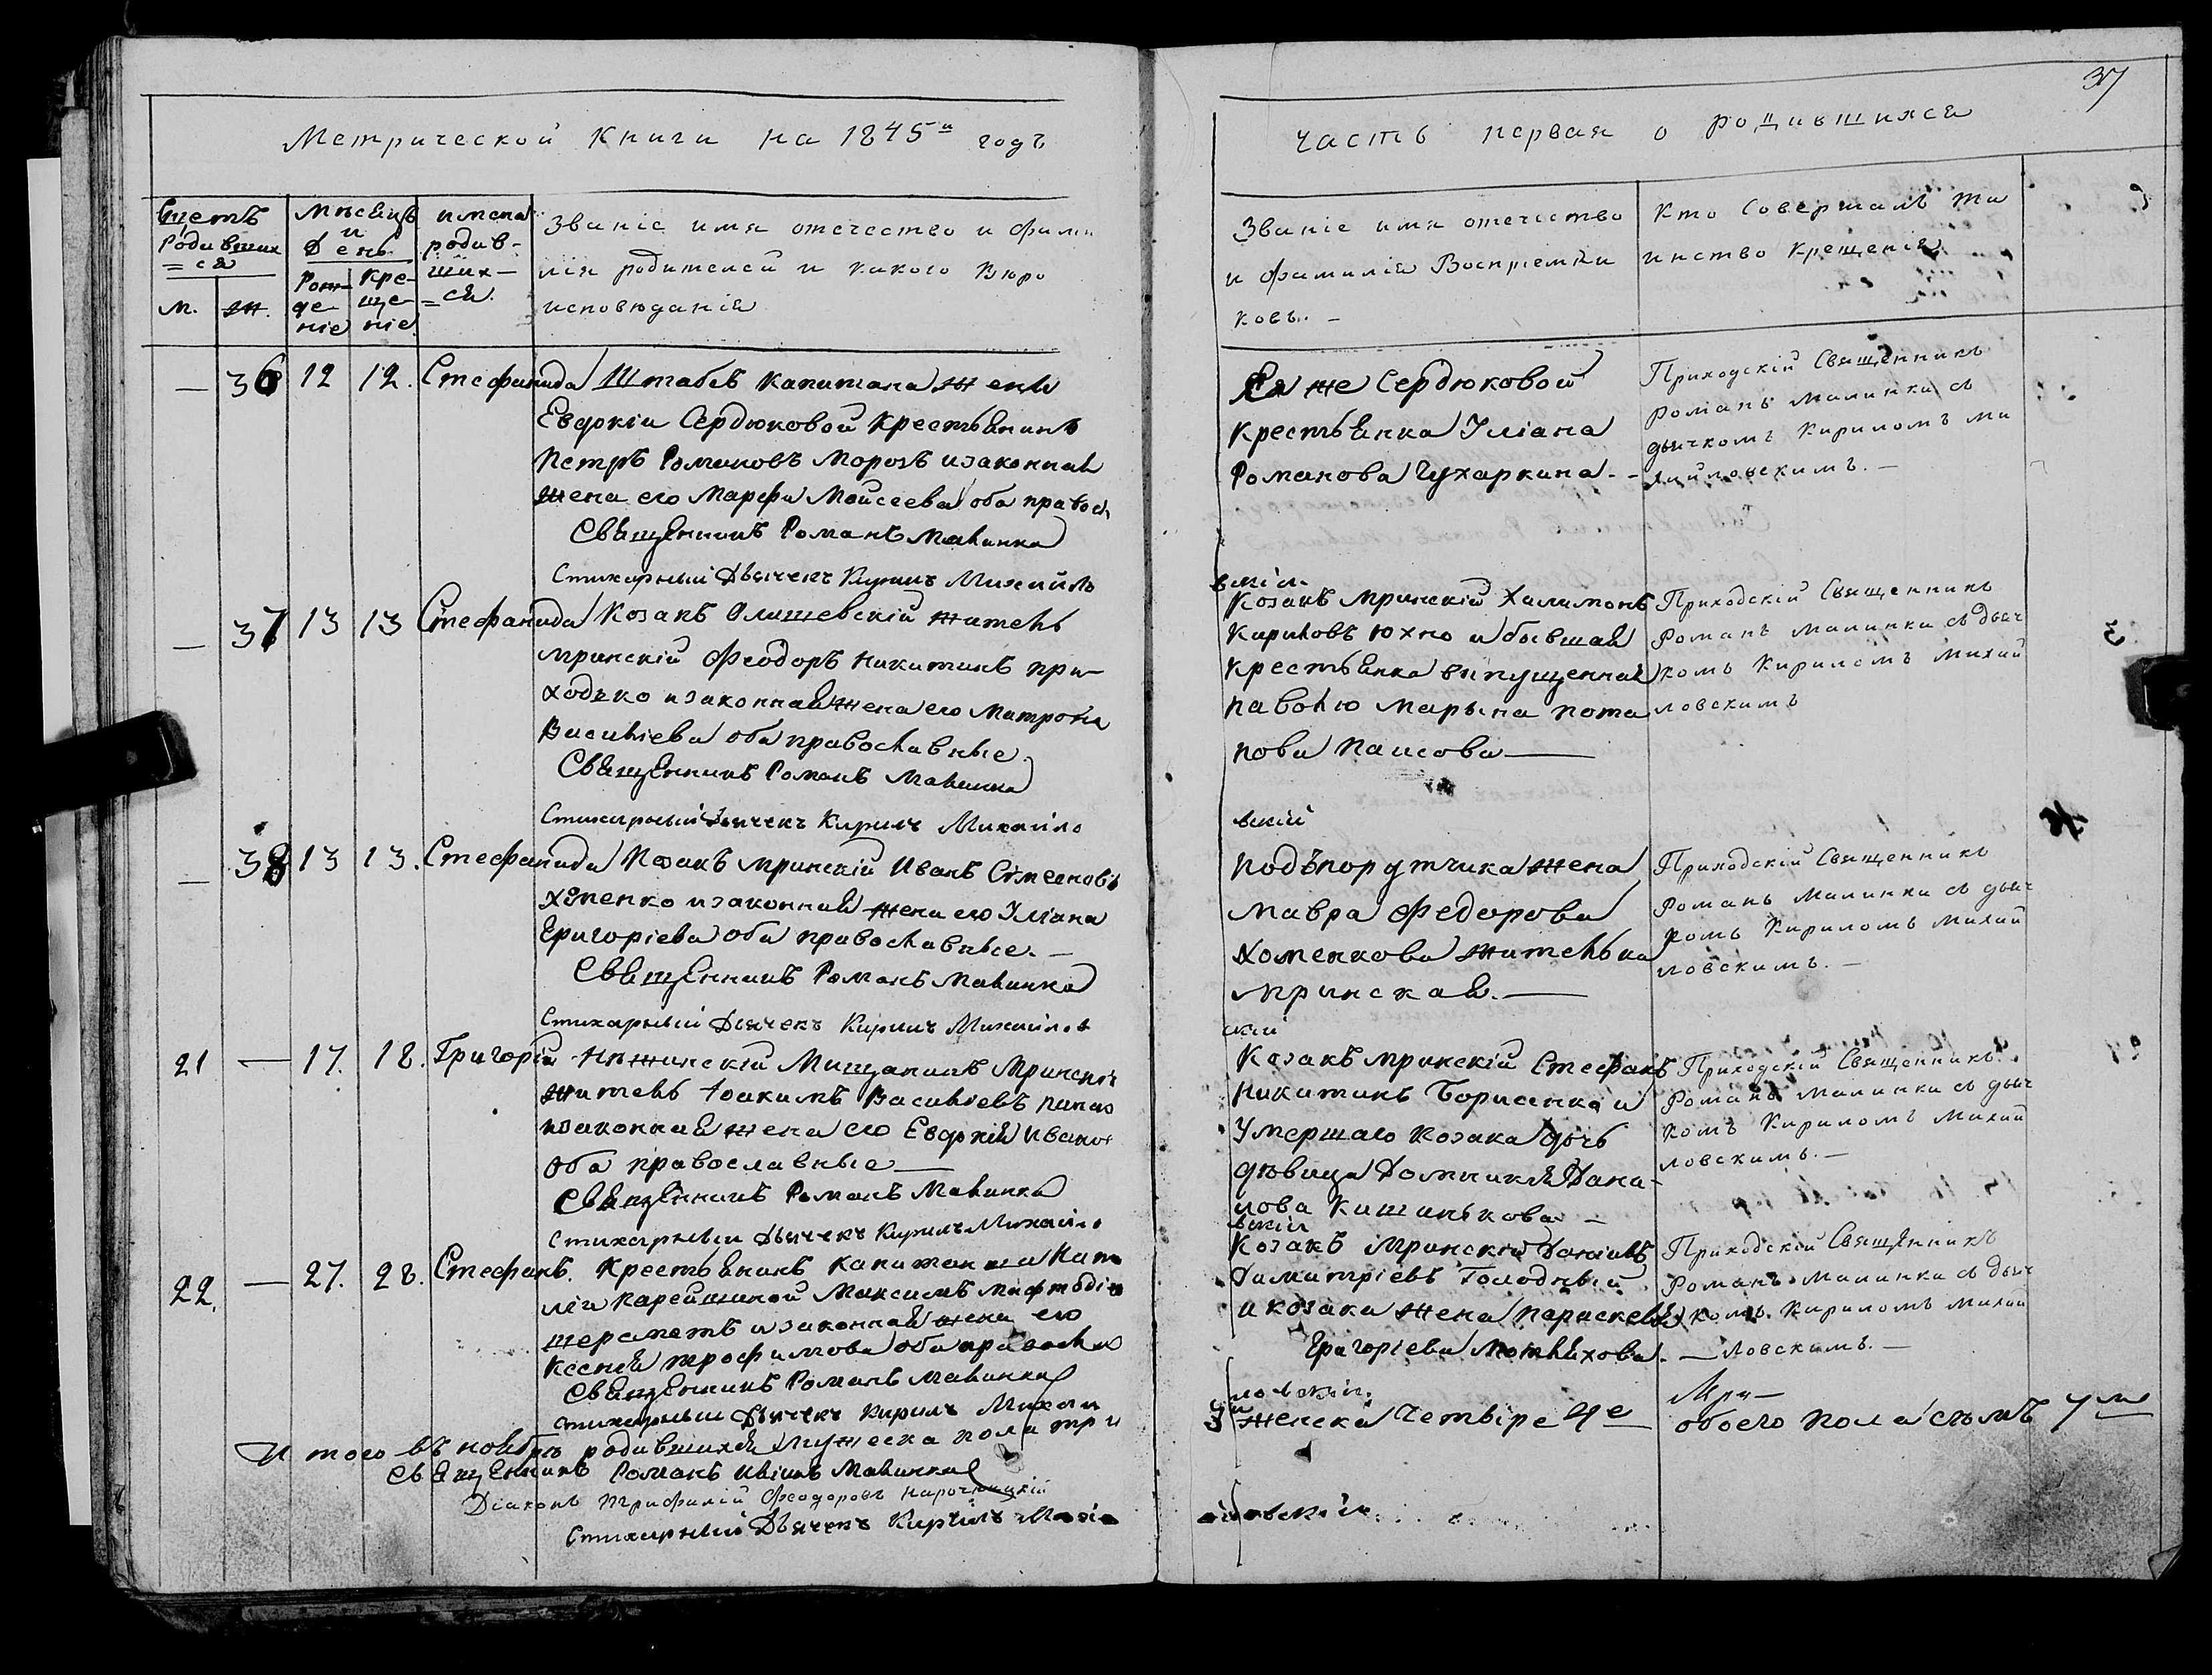 37
Метрической книги на 1845й годъ
часть первая о родившихся
Щетъ родивших=ся
м. ж.
мѣсяцъ и день
Рождение
крещение
имена родив-ших-=ся.
Званіе имя отечество и фами
лія родителей и какого вѣро
исповѣданія
Званіе имя отечество
и фамилія Воспріемни
ковъ. -
Кто Совершалъ та
инство крещенія
— 36 12 12. Стефанида Штабсъ капитана жены
Евдокіи Сердюковой крестьянинъ
Петръ Романовъ Морозъ и законная
жена его Марфа Моисеева оба правосл
Священникъ Романъ Малинка
Стихарный Дьячекъ Кирилъ Михайло
Ея же Сердюковой
крестьянка Уліана
Романова Чухаркина. -
Приходскій Священникъ
Романъ Малинка съ
дьячкомъ Кириломъ Ми
хайловскимъ. —
вскій
— 37 13 13 Стефанида Козакъ Олишевскій житель
мринскій Феодоръ Никитинъ при-
ходько и законная жена его Матрона
Василіева оба православные.
Священникъ Романъ Малинка
Стихарный Дьячекъ Кирилъ Михайло
Козакъ мринскій Халимонъ
Кириловъ Юхно и бывшая
крестьянка выпущенная
на волю Марына пота
пова Паисова —
Приходскій Священникъ
Романъ Малинка съ дьяч
комъ Кириломъ Михай
ловскимъ
вскій
— 38 13 13. Стефанида Козакъ мринскій Иванъ Симеоновъ
хоменко и законная жена его Уліана
Григоріева оба православные. —
Священникъ Романъ Малинка
Стихарный Дьячекъ Кирилъ Михайлов
Подъпорутчика жена
Мавра Федорова
Хоменкова жителька
мринская. —
Приходскій Священникъ
Романъ Малинка съ дьяч
комъ Кириломъ Михай
ловскимъ. —
скій
21 — 17. 18. Григорій Нѣжинскій Мищанинъ Мринскій
житель Іоакимъ Василіевъ
и законная жена его Евдокія Иванов
оба православные —
Священникъ Романъ Малинка
Стихарный Дьячекъ Кирилъ Михайло
Козакъ мринскій Стефанъ
Никитинъ Борисенко и
Умершаго козака дочь
дѣвица Домникія Дани-
лова Кишинькова —
Приходскій Священникъ
Романъ Малинка съ дьяч
комъ Кириломъ Михай
ловскимъ. —
вскій
22. — 27. 28. Стефанъ. Крестьянинъ капитанши Ната
ліи Карейшиной Максимъ Мефтодіев
шереметъ и законная жена его
Ксенія трофимова оба православ
Священникъ Романъ Малинка
стихарный Дьячекъ Кирилъ Михаи
Козакъ Мринскій Даніилъ
Димитріевъ Голодный
и козака жена Параскевія
Григоріева
Приходскій Священникъ
Романъ Малинка съ дьяч
комъ Кириломъ Михай
— ловскимъ. —
ловскій.
Итого въ ноябрѣ родившихся мужеска пола три
3и женска четыре 4е
обоего пола съмъ 7м
Священникъ Романъ Малинка
Діаконъ Трифилій Феодоровъ Нарочницкій
Стихарный Дьячекъ Кирилъ Михаи
ловскій